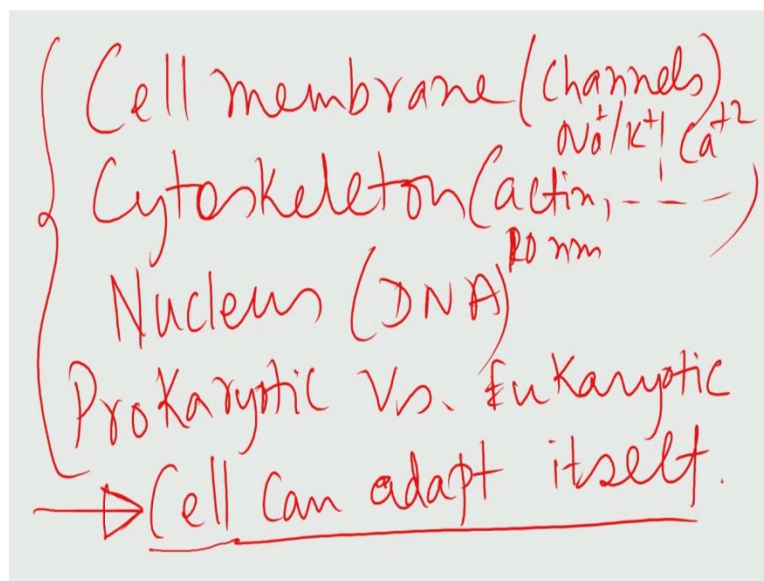 Cell membrane (Channels)
Na+/K+/ Ca+2
Cytoskeleton (actin, - - - -)
nm
Nucleus (DNA)
Prokaryotic Vs. Eukaryotic
→ Cell Can adapt itself.